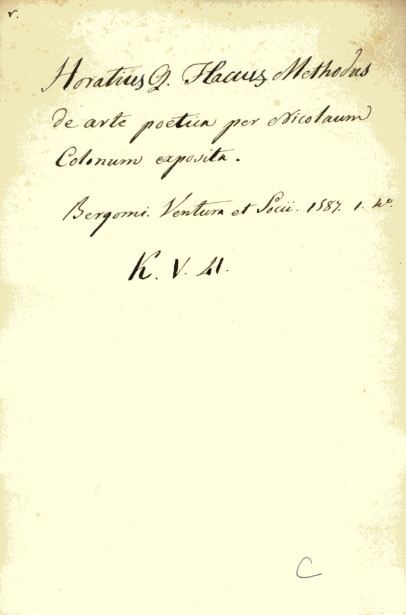 v.
Horatius Q. Flacus Methodus
de arte poetica per Nicolaum
Colonum exposita.
Bergomi. Ventura et Socii. 1587. 1. 4º.
K. V. 41.
C